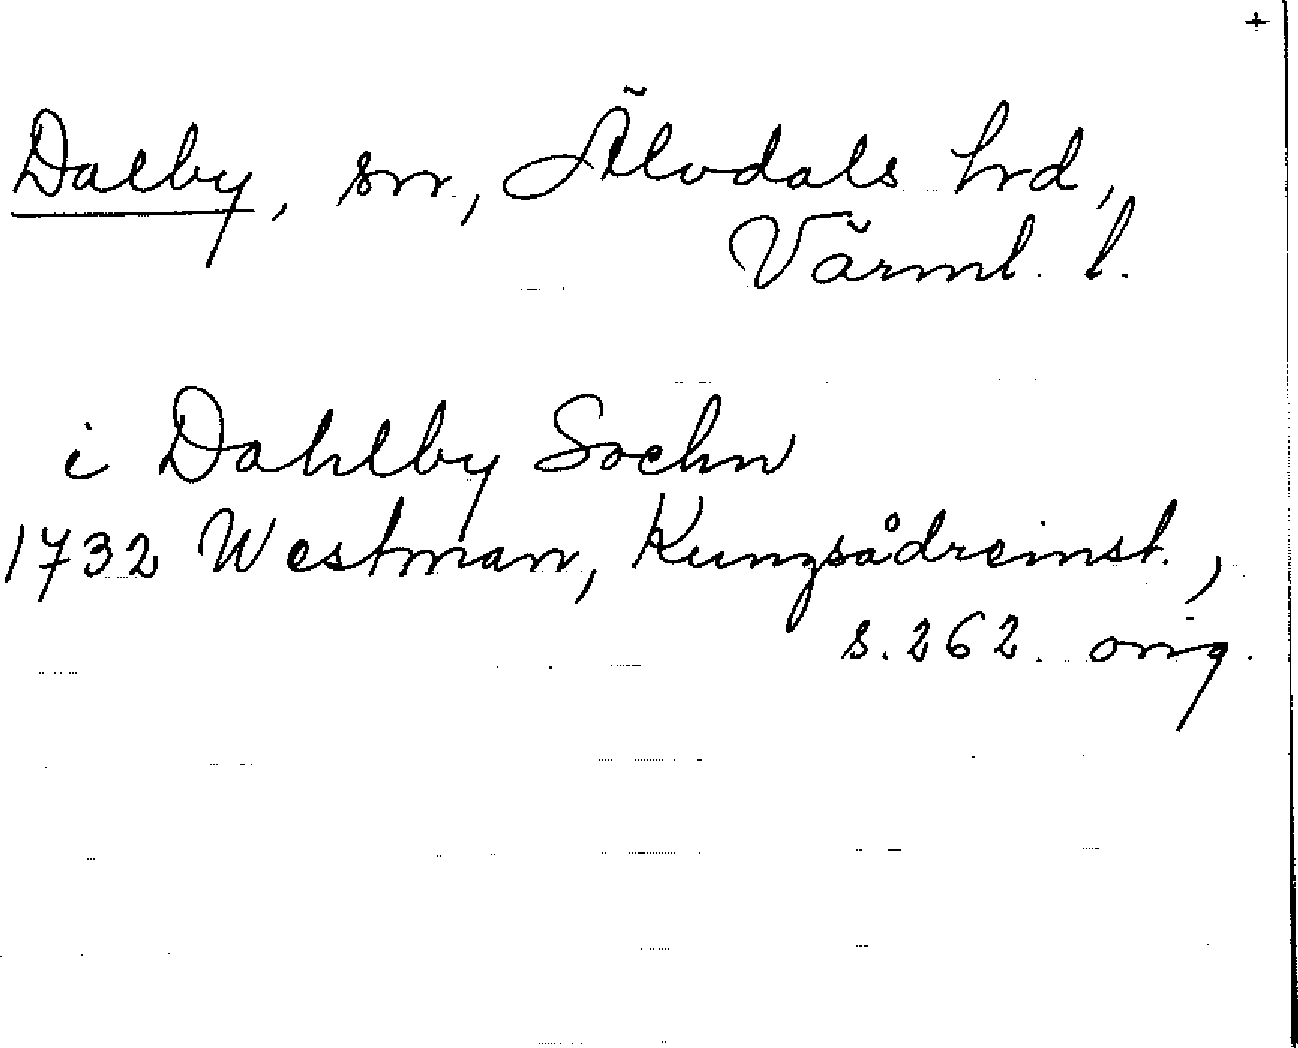 +
Dalby, sn, Älvdals hrd,
Värml. l.
i Dahlby Sochn
1732 Westman, Kungsådreinst.,
s. 262. orig.